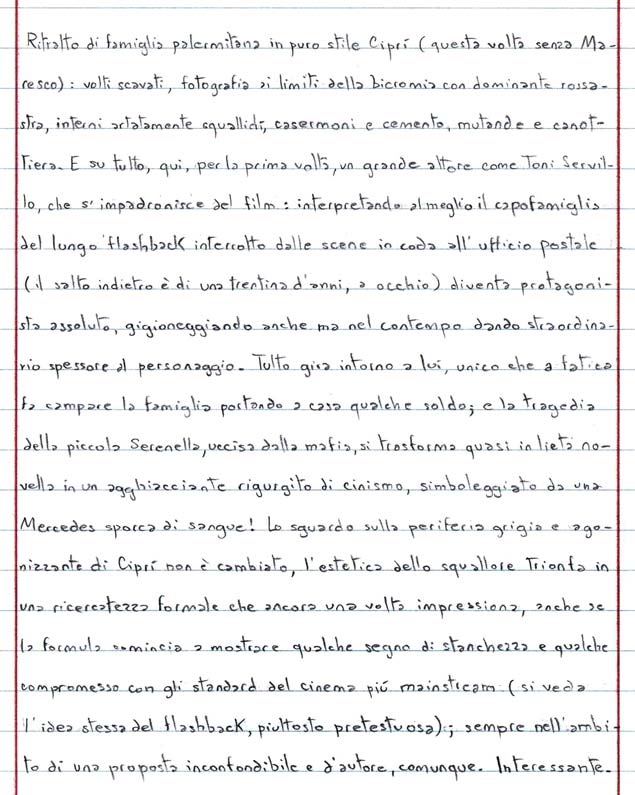 Ritratto di famiglia palermitana in puro stile Ciprì (questa volta senza Ma-
resco): volti scavati, fotografia ai limiti della bicromia con dominante rossa-
stra, interni artatamente squallidi, casermoni e cemento, mutande e canot-
tiera. E su tutto, qui, per la prima volta, un grande attore come Toni Servil-
lo, che s'impadronisce del film: interpretando al meglio il capofamiglia
del lungo flashback interrotto dalle scene in coda all'ufficio postale
(il salto indietro è di una trentina d'anni, a occhio) diventa protagoni-
sta assoluto, gigioneggiando anche ma nel contempo dando straordina-
rio spessore al personaggio. Tutto gira intorno a lui, unico che a fatica
fa campare la famiglia portando a casa qualche soldo; e la tragedia
della piccola Serenella, uccisa dalla mafia, si trasforma quasi in lieta no-
vella in un agghiacciante rigurgito di cinismo, simboleggiato da una
Mercedes sporca di sangue! Lo sguardo sulla periferia grigia e ago-
nizzante di Ciprì non è cambiato, l'estetica dello squallore trionfa in
una ricercatezza formale che ancora una volta impressiona, anche se
la formula comincia a mostrare qualche segno di stanchezza e qualche
compromesso con gli standard del cinema più mainstream (si veda
l'idea stessa del flashback, piuttosto pretestuosa); sempre nell'ambi-
to di una proposta inconfondibile e d'autore, comunque. Interessante.